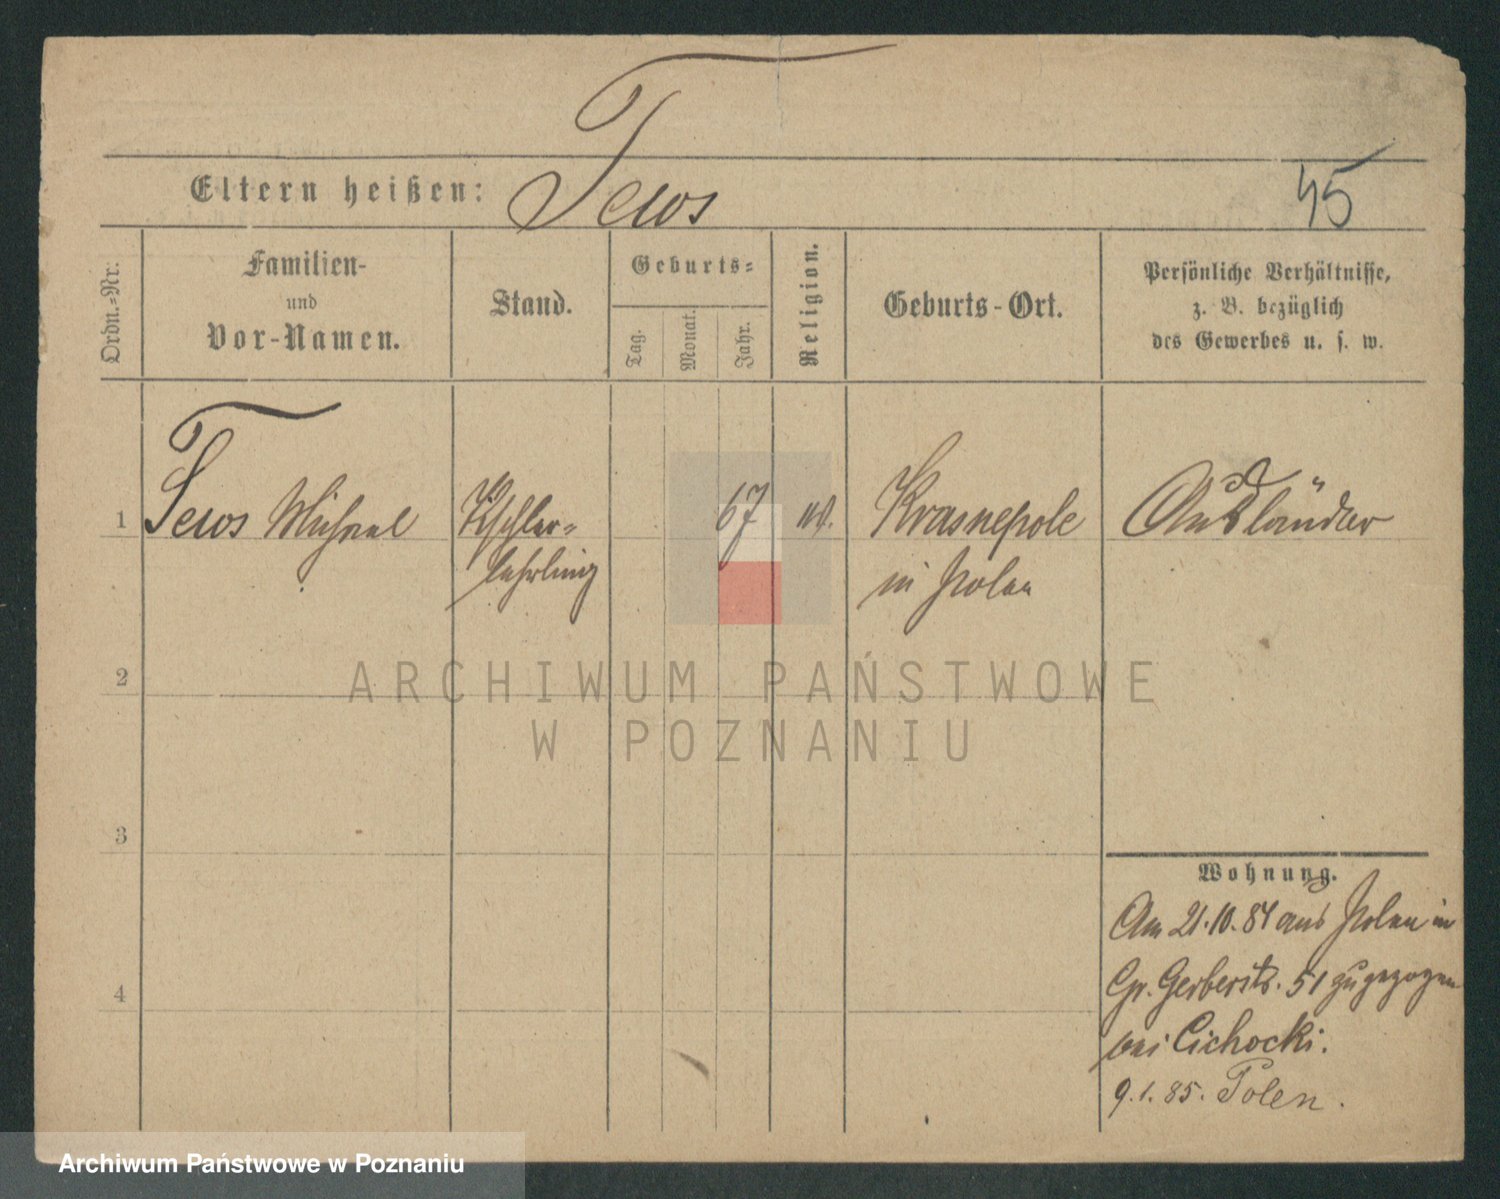 Eltern heißen: Tews
45
Ordn.=Nr.
Familien-
und
Vor-Namen.
Stand.
Geburts=
Tag.
Monat.
Jahr.
Religion.
Geburts-Ort.
Persönliche Verhältnisse,
z. B. bezüglich
des Gewerbes u. s. w.
1 Tews Michael Tischler= 67 Krasnepole Ausländer
lehrling in Polen
2
ARCHIWUM PAŃSTWOWE
W POZNANIU
3
Wohnung.
Am 21.10.84 aus Polen in
4 Gr. Gerberstr. 51 zugezogen
bei Cichocki.
9.1.85. Polen.
Archiwum Państwowe w Poznaniu